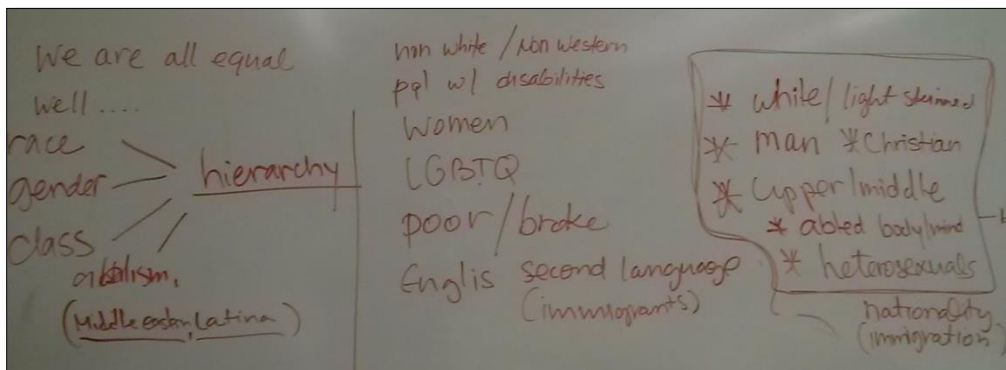 We are all equal
well....
race
gender
class
hierarchy
(Middle eastern, Latina)
non white / Non western
ppl w/ disabilities
women
LGBTQ
poor/broke
Englis second language
(immigrants)
* white/light skinned
* man * Christian
* upper/middle
* abled body/mind
* heterosexuals
nationality
(immigration)